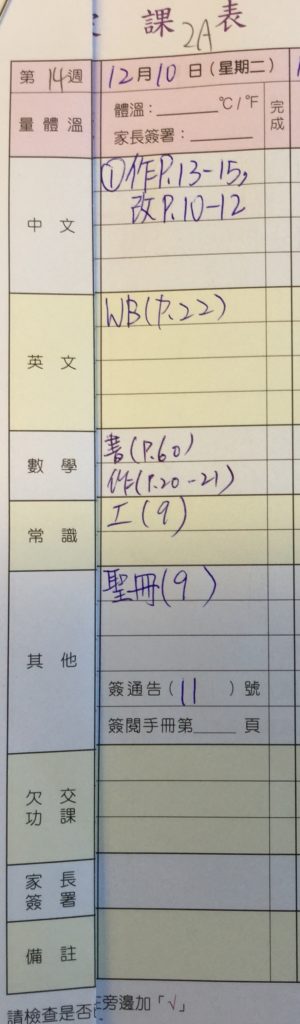 課表
2A
第14週
12月10日(星期二)
量體溫
體溫：______℃/℉
家長簽署：______
完成
中文
①作P.13-15,
改P.10-12
英文
WB(P.22)
數學
書(P.60)
作(P.20-21)
常識
工(9)
其他
聖冊(9)
簽通告(11)號
簽閱手冊第____頁
欠交功課
家長簽署
備註
請檢查是否
旁邊加「√」